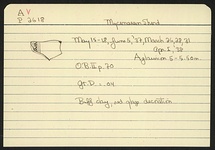 A V
P 2618
Mycenaean Sherd
May 15-18, June 5, '37, March 26, 28, 31
Apr. 1, '38
5-5.50m
O.B. p. 20
gr. D. = .04
Buff clay, red glaze decoration